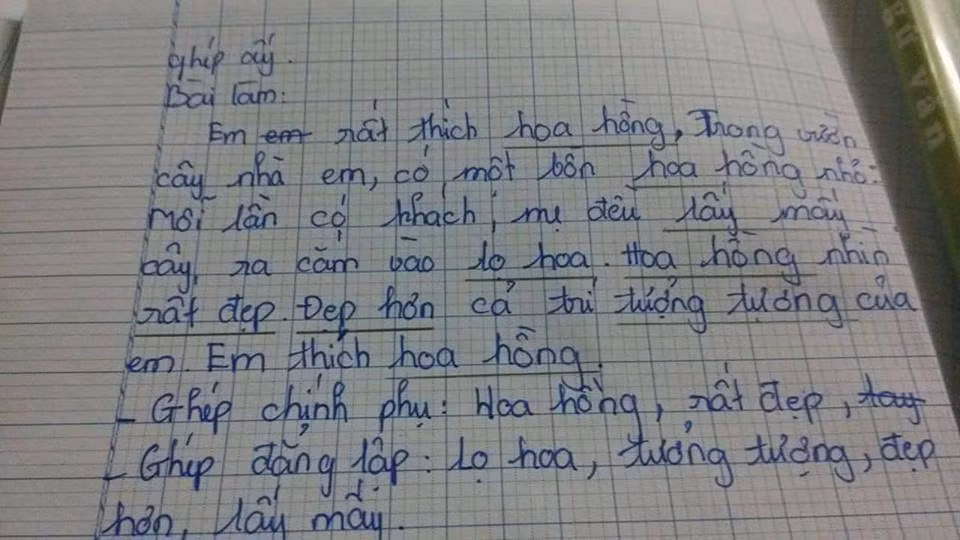 ghép ấy.
Bài làm:
Em em rất thích hoa hồng, Trong vườn
cây nhà em, có một bồn hoa hồng nhỏ.
Mỗi lần có khách, mẹ đều lấy mấy
cây ra cắm vào lọ hoa. Hoa hồng nhìn
rất đẹp. Đẹp hơn cả trí tưởng tượng của
em. Em thích hoa hồng.
- Ghép chính phụ: Hoa hồng, rất đẹp, tay
- Ghép đẳng lập: lọ hoa, tưởng tượng, đẹp
hơn, lấy mấy.